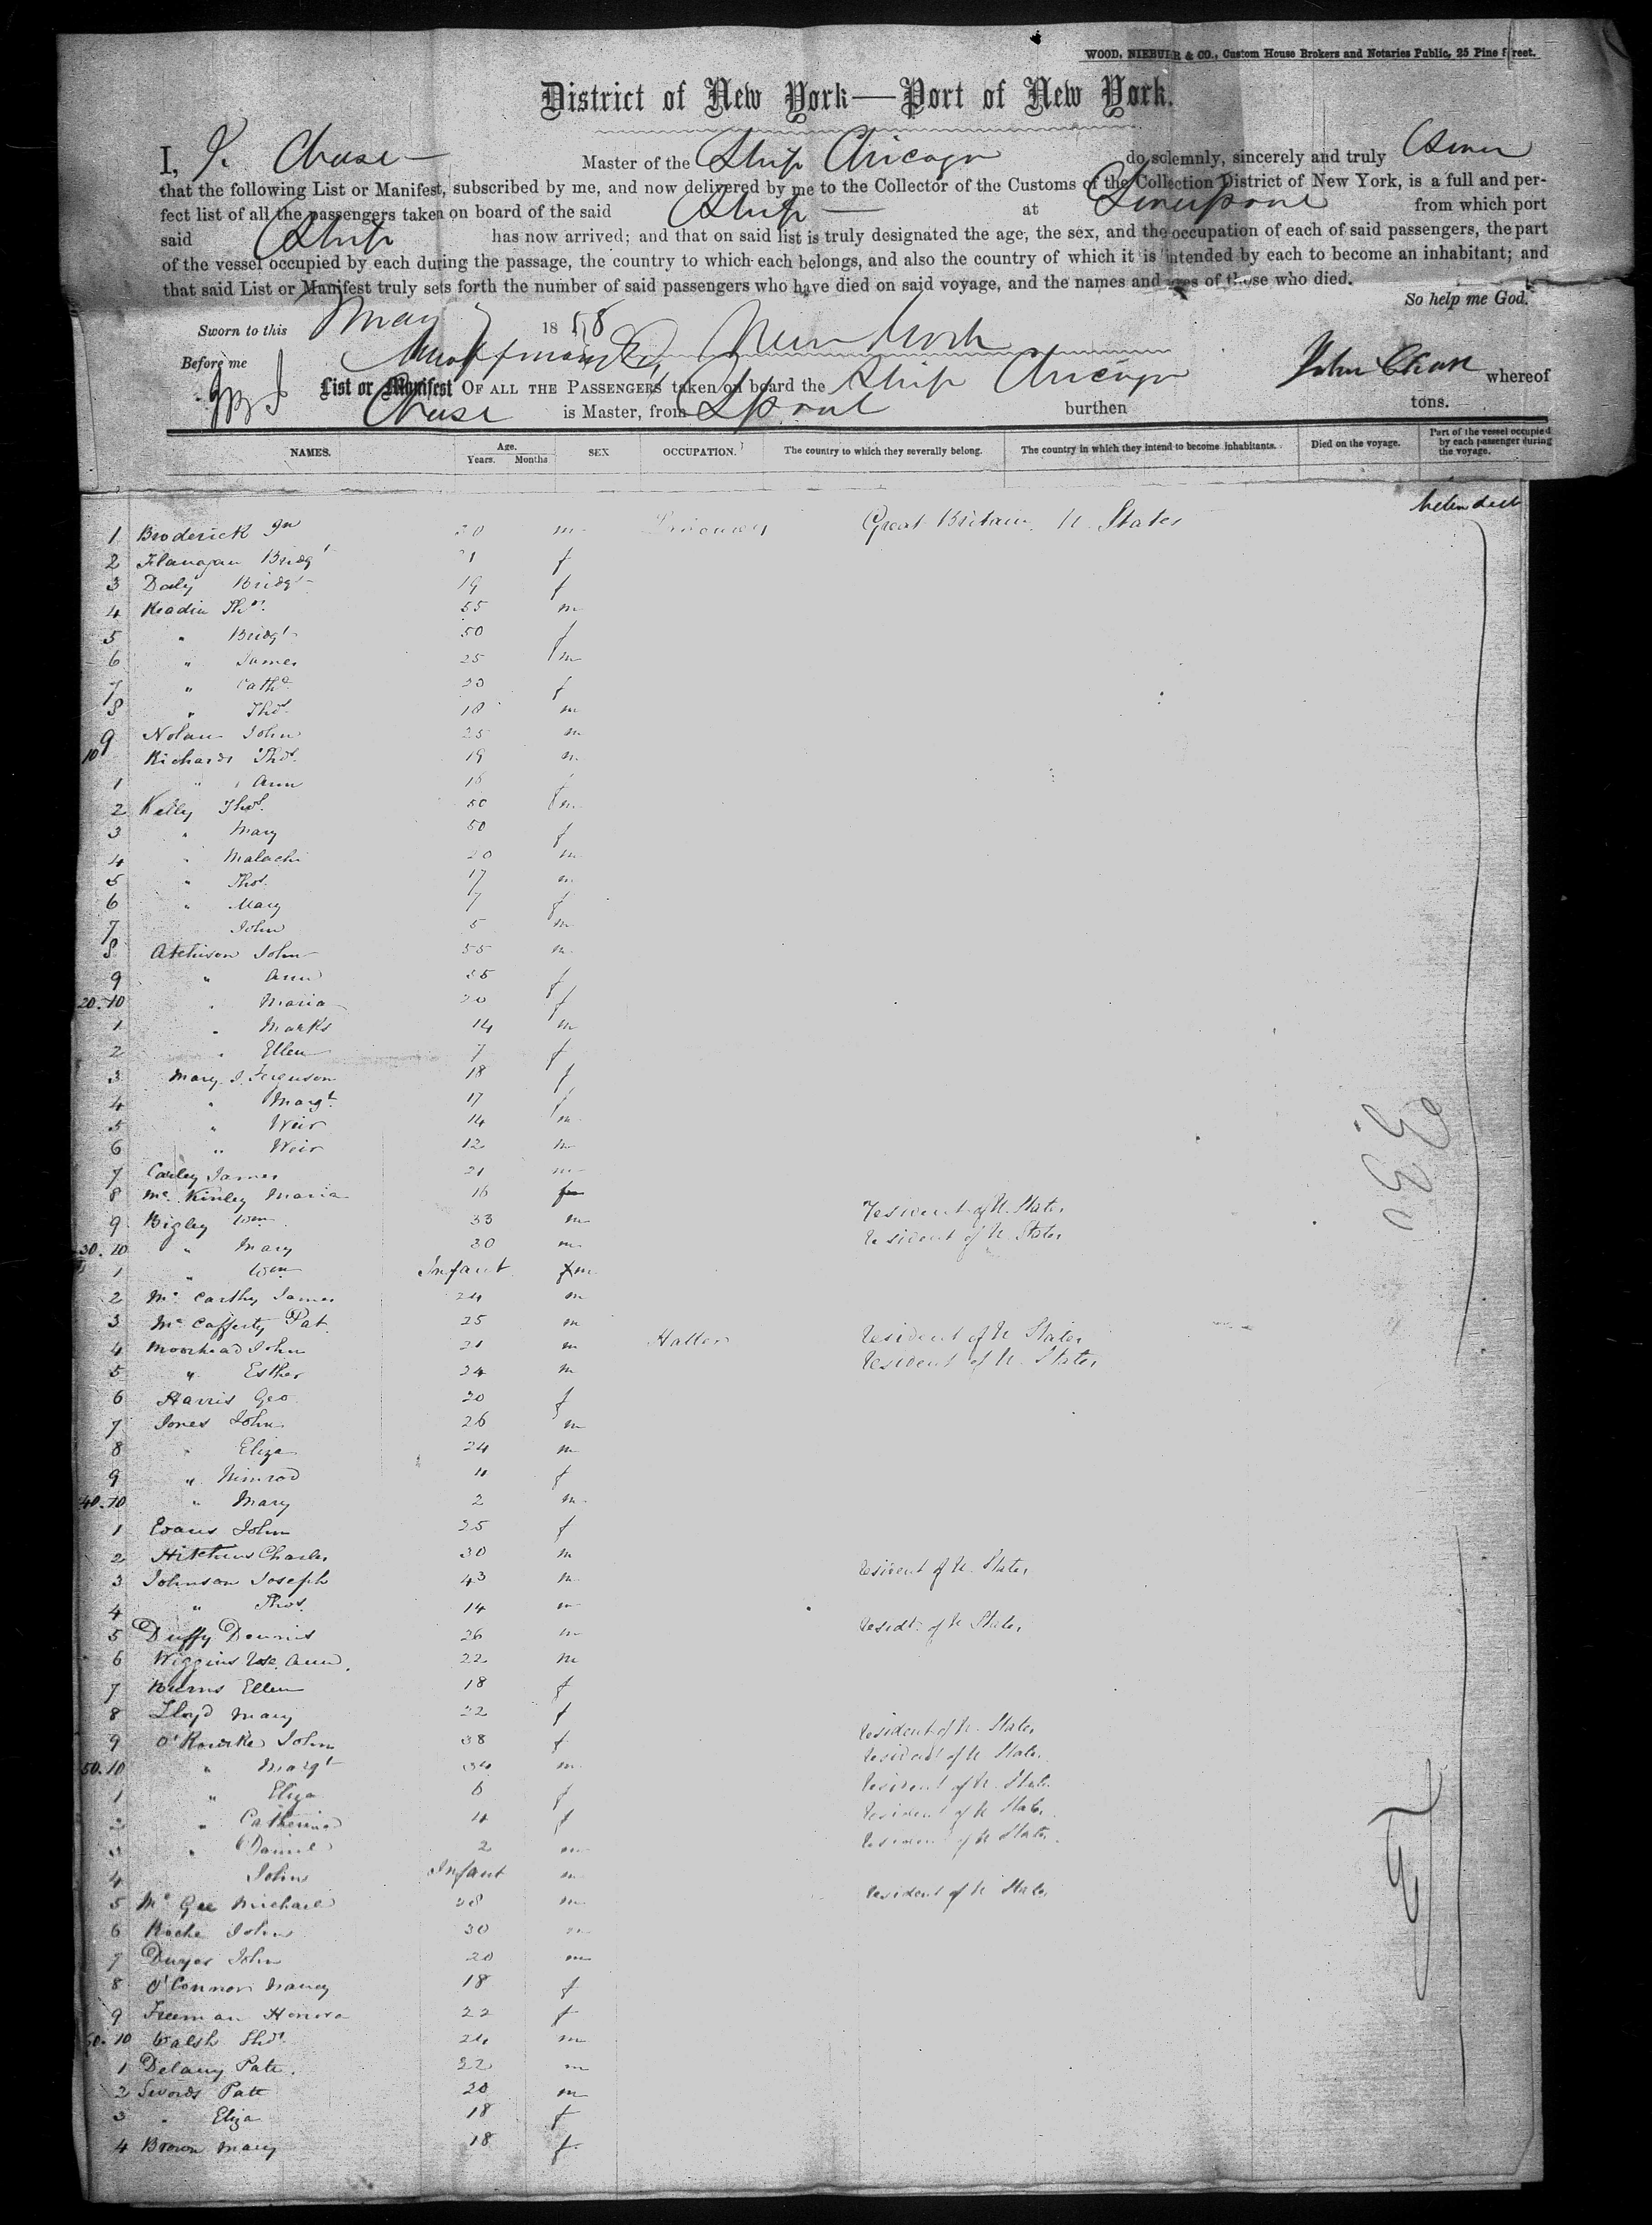 WOOD, NIEBUHR & CO., Custom House Brokers and Notaries Public, 25 Pine Street.
District of New York—Port of New York.
I, J. Chase Master of the Ship Chicago do solemnly, sincerely and truly Swear
that the following List or Manifest, subscribed by me, and now delivered by me to the Collector of the Customs of the Collection District of New York, is a full and per-
fect list of all the passengers taken on board of the said Ship at Liverpool from which port
said Ship has now arrived; and that on said list is truly designated the age, the sex, and the occupation of each of said passengers, the part
of the vessel occupied by each during the passage, the country to which each belongs, and also the country of which it is intended by each to become an inhabitant; and
that said List or Manifest truly sets forth the number of said passengers who have died on said voyage, and the names and ages of those who died.
So help me God.
Sworn to this May 7 1858 New York
Before me John Chase
List or Manifest OF ALL THE PASSENGERS taken on board the Ship Chicago whereof
Chase is Master, from Lpool burthen tons.
NAMES. Age. Years. Months SEX OCCUPATION. The country to which they severally belong. The country in which they intend to become inhabitants. Died on the voyage. Part of the vessel occupied by each passenger during the voyage.
1 Broderick 20 m Great Britain U. States
2 Flanagan Bridgt 21 f
3 Daly Bridgt 19 f
4 Readin Thos. 55 m
5 " Bridgt 50 f
6 " James 25 m
7 " Cathe 20 f
8 " Thos. 18 m
9 Nolan John 25 m
10 Richards Thos. 19 m
1 " Ann 16 f
2 Kelly Thos. 50 m
3 " Mary 50 f
4 " Malachi 20 m
5 " Thos. 17 m
6 " Mary 7 f
7 John 5 m
8 Atchison John 55 m
9 " Ann 55 f
20.10 " Maria 20 f
1 " Marks 14 m
2 " Ellen 7 f
3 Mary J. Ferguson 18 f
4 " Margt. 17 f
5 " Weir 14 m
6 " Weir 12 m
7 Carley James 21 m
8 Mc Kinley Maria 16 f
9 Bigley Wm 33 m resident of U. States
30.10 " Mary 30 m resident of U. States
1 " Wm Infant m
2 Mc Carthy James 24 m
3 Mc Cafferty Pat. 25 m
4 Moorhead John 21 m Hatter resident of U States
5 " Esther 24 m resident of U. States
6 Harris Geo 20 f
7 Jones John 26 m
8 " Eliza 24 m
9 " Nimrod 4 f
40.10 " Mary 2 m
1 Evans John 25 f
2 Hitchins Charles 30 m
3 Johnson Joseph 43 m resident of U. States
4 " Thos. 14 m
5 Duffy Dennis 26 m residt. of U States
6 Wiggins Ann 22 m
7 Burns Ellen 18 f
8 Lloyd Mary 22 f
9 O'Rourke John 38 f resident of U. States
50.10 " Margt 34 m resident of U States
1 " Eliza 6 f resident of U. States
2 " Catherine 4 f resident of U States
3 " Daniel 2 m resident of U States
4 John Infant m
5 Mc Gee Michael 28 m resident of U States
6 Roche John 30 m
7 Dwyer John 20 m
8 O'Connor Nancy 18 f
9 Freeman Honora 22 f
60.10 Walsh Thos. 24 m
1 Delany Patk. 22 m
2 Swords Patk 20 m
3 " Eliza 18 f
4 Brown Mary 18 f